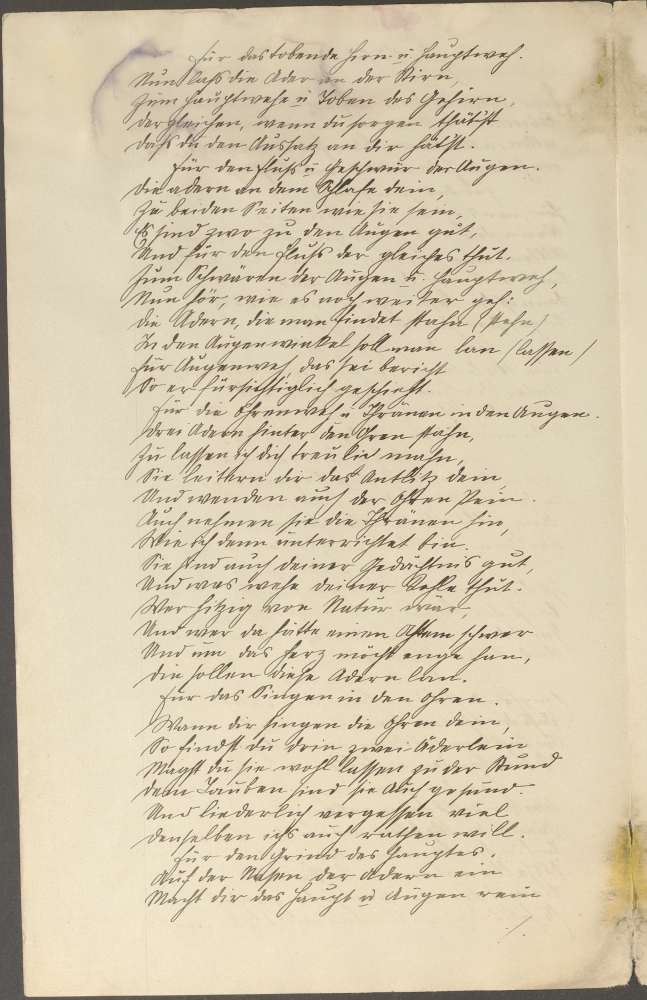 Für das tobende Hirn- u Hauptweh.
Nun lass die Ader an der Stirn,
Zum Hauptwehe u Toben des Gehirn,
Dergleichen, wenn du sorgen thätst
Dass du den Aussatz an dir hätst.
Für den Fluss u Geschwür der Augen.
Die adern an dem Schlafe dein,
Zu beiden Seiten wie sie sein,
Es sind zwo zu den Augen gut,
Und für den Fluss der gleiches thut.
Zum Schwären der Augen u. Hauptweh,
Nun hör, wie es noch weiter geh:
Die Adern, die man findet stahn (stehn)
In den Augenwinkel soll man lan (lassen)
Für Augenweh, das sei bericht
So er fürsichtiglich geschicht.
Für die Ohrenweh u Thränen in den Augen.
Drei Adern hinter den Oren stahn,
Zu lassen ich dich treulich mahn,
Sie leitern dir das Antlitz dein,
Und wenden auch der Ohren Pein.
Auch nehmen sie die Thränen hin,
Wie ich denn unterrichtet bin.
Sie sind auch deiner Gedächtnis gut,
Und was wehe deiner Kehle thut.
Wer hitzig von Natur wär,
Und wer da hätte einen Athem schwer
Und um das Herz möcht enge han,
Die sollen diese Adern lan.
Für das Singen in den Ohren.
Wann dir singen die Ohren dein,
So findst du drin zwei Äderlein
Magst du sie wohl lassen zu der Stund
Dem Tauben sind sie auch gesund.
Und liederlich vergessen viel
Denselben ichs auch rathen will.
Für den Grind des Hauptes.
Auf der Nasen der Adern ein
Macht dir das Haupt u Augen rein